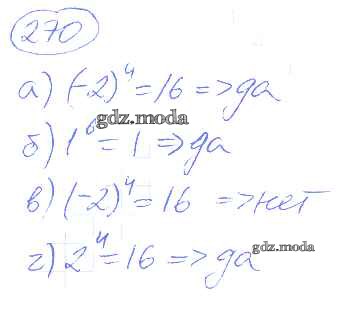 270
а) (-2)⁴ = 16 => да
gdz.moda
б) 1⁶ = 1 => да
в) (-2)⁴ = 16 => нет
г) 2⁴ = 16 => да
gdz.moda